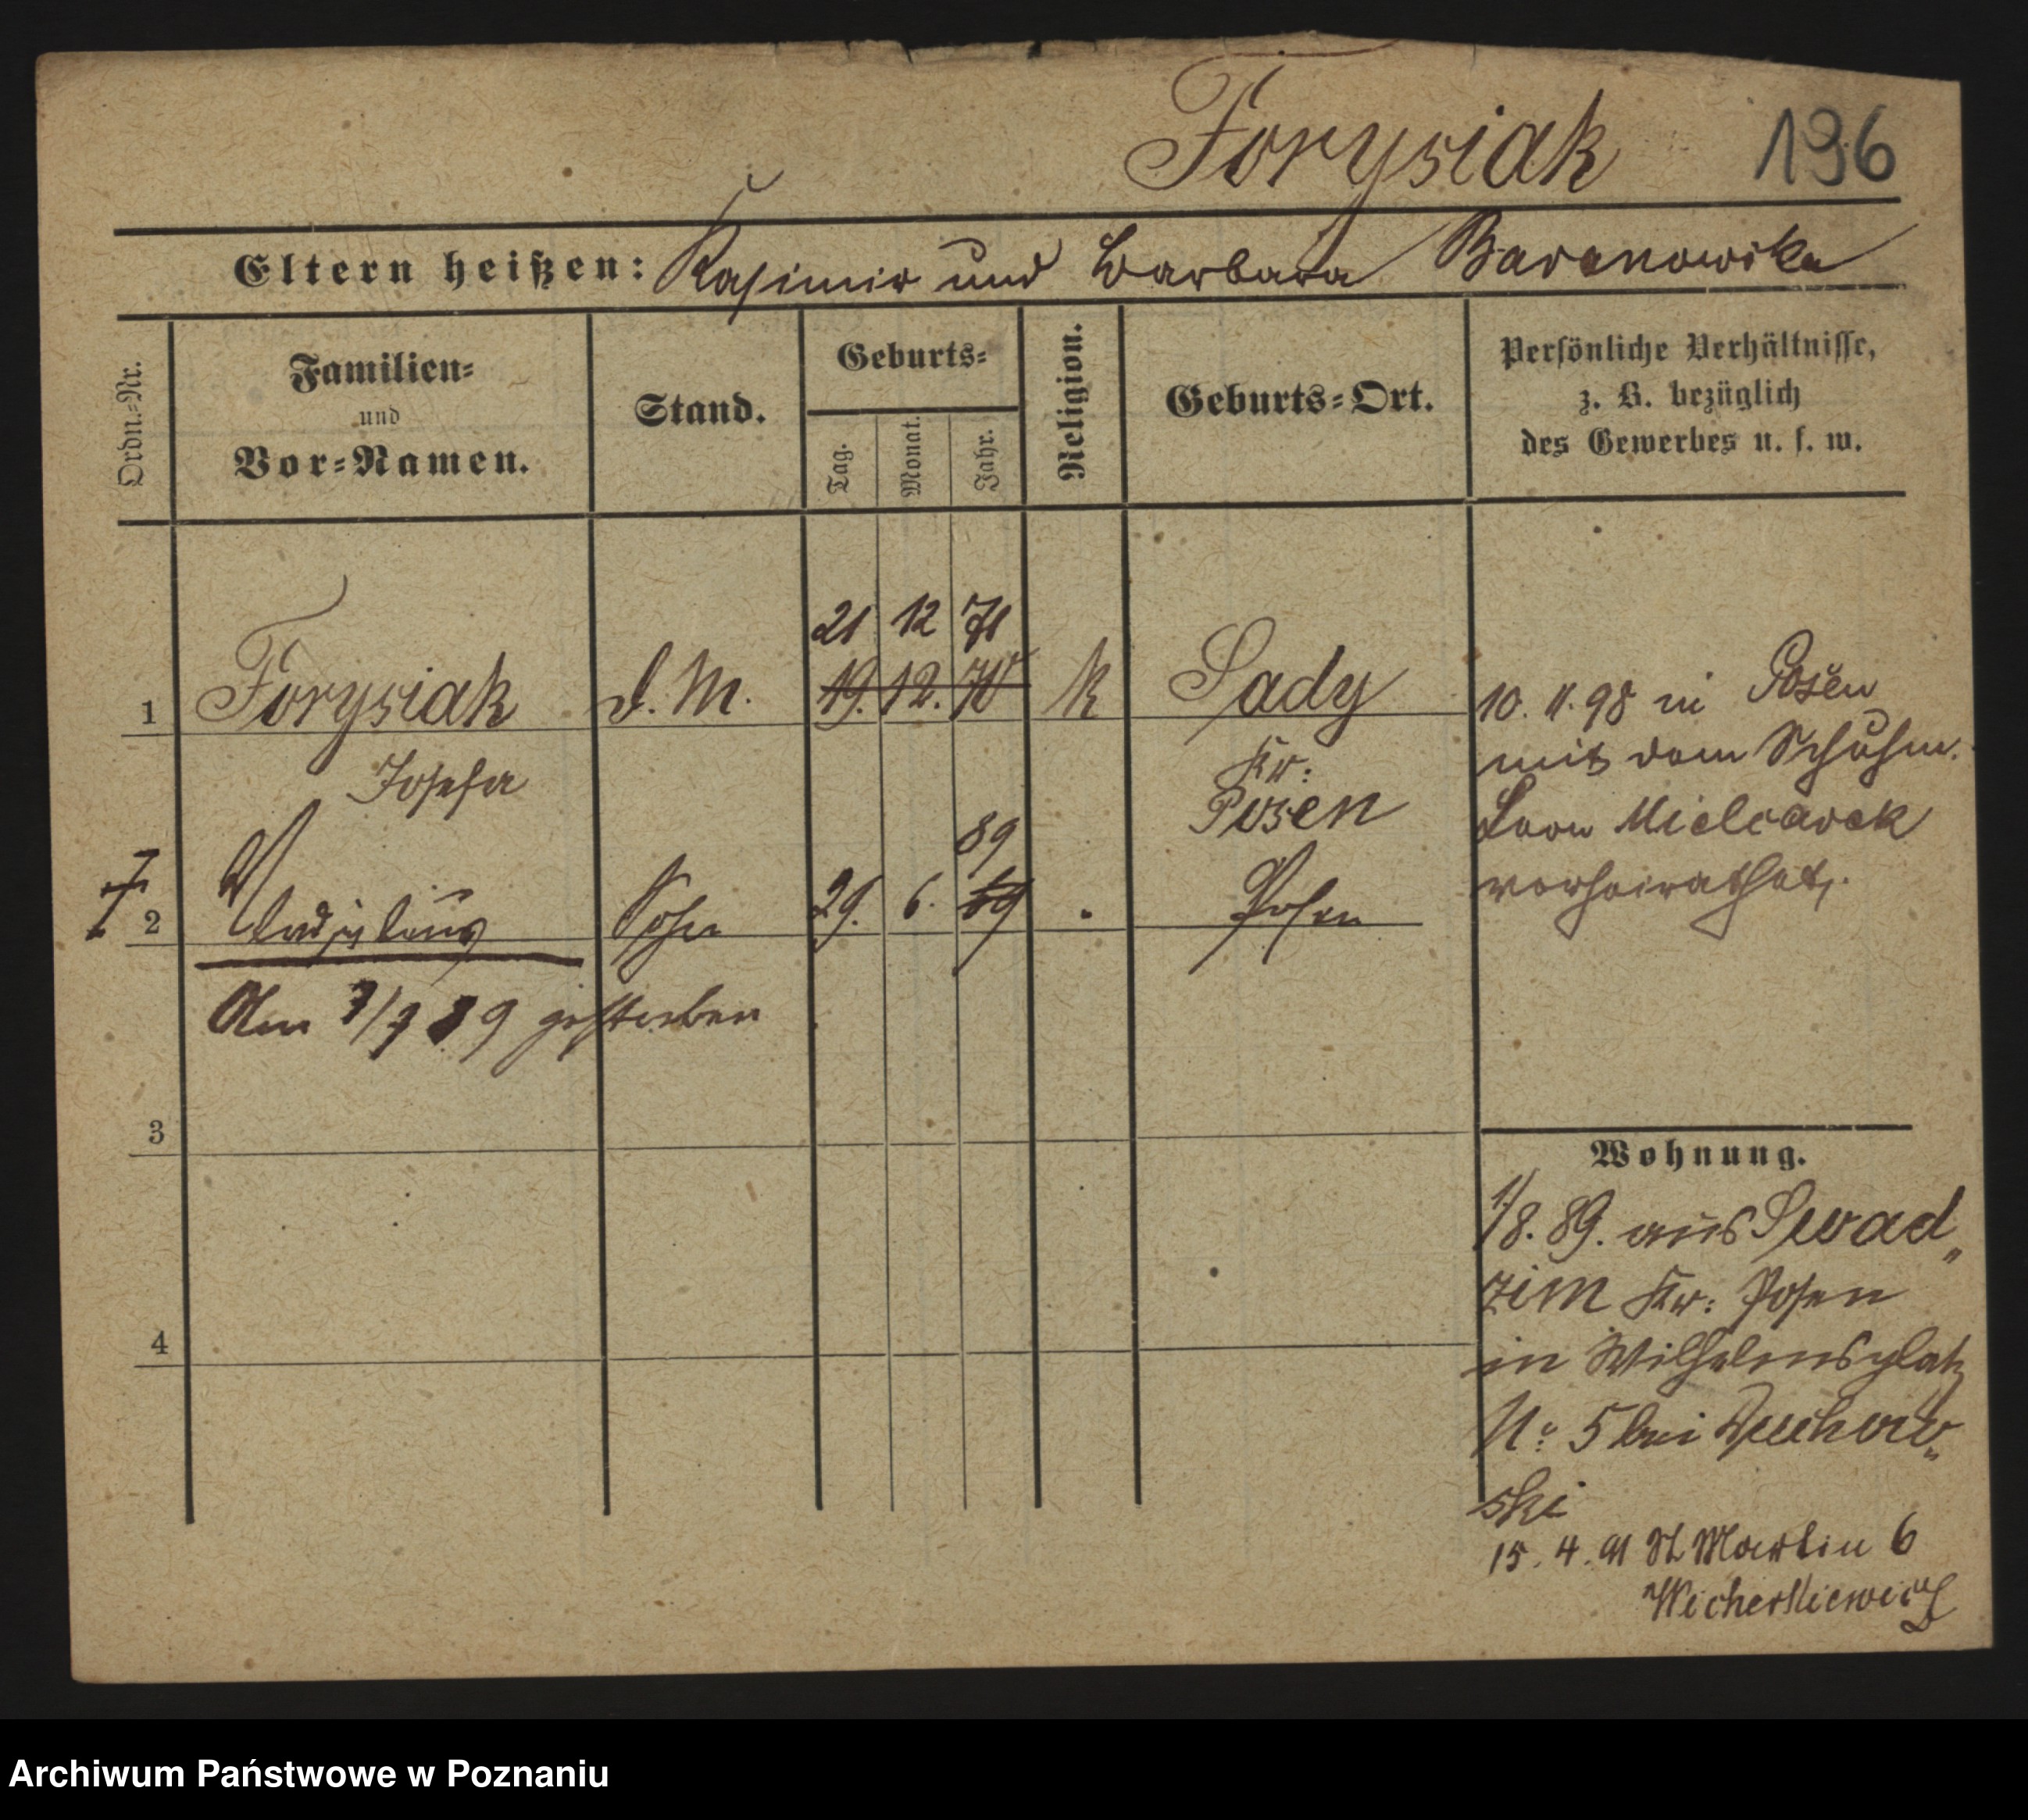 Forysiak 196
Eltern heißen: Kasimir und Barbara Baranowska
Ordn.=Nr.
Familien=
und
Vor=Namen.
Stand.
Geburts=
Tag.
Monat.
Jahr.
Religion.
Geburts=Ort.
Persönliche Verhältnisse,
z. B. bezüglich
des Gewerbes u. s. w.
21 12 71
1 Forysiak d. M. 19. 12. 70 k Sady
Josefa
Kr:
Posen
10. 11. 98 in Posen
mit dem Schuhm.
Leon Mielcarek
verheirathet.
89
† 2 Wladislaus Sohn 29. 6. 69 . Posen
Am 7/9 89 gestorben
3
4
Wohnung.
1/8. 89. aus Swad„
zim Kr: Posen
in Wilhelmsplatz
No 5 bei Duchow„
ski
15. 4. 91 St Martin 6
Wicherkiewicz
Archiwum Państwowe w Poznaniu